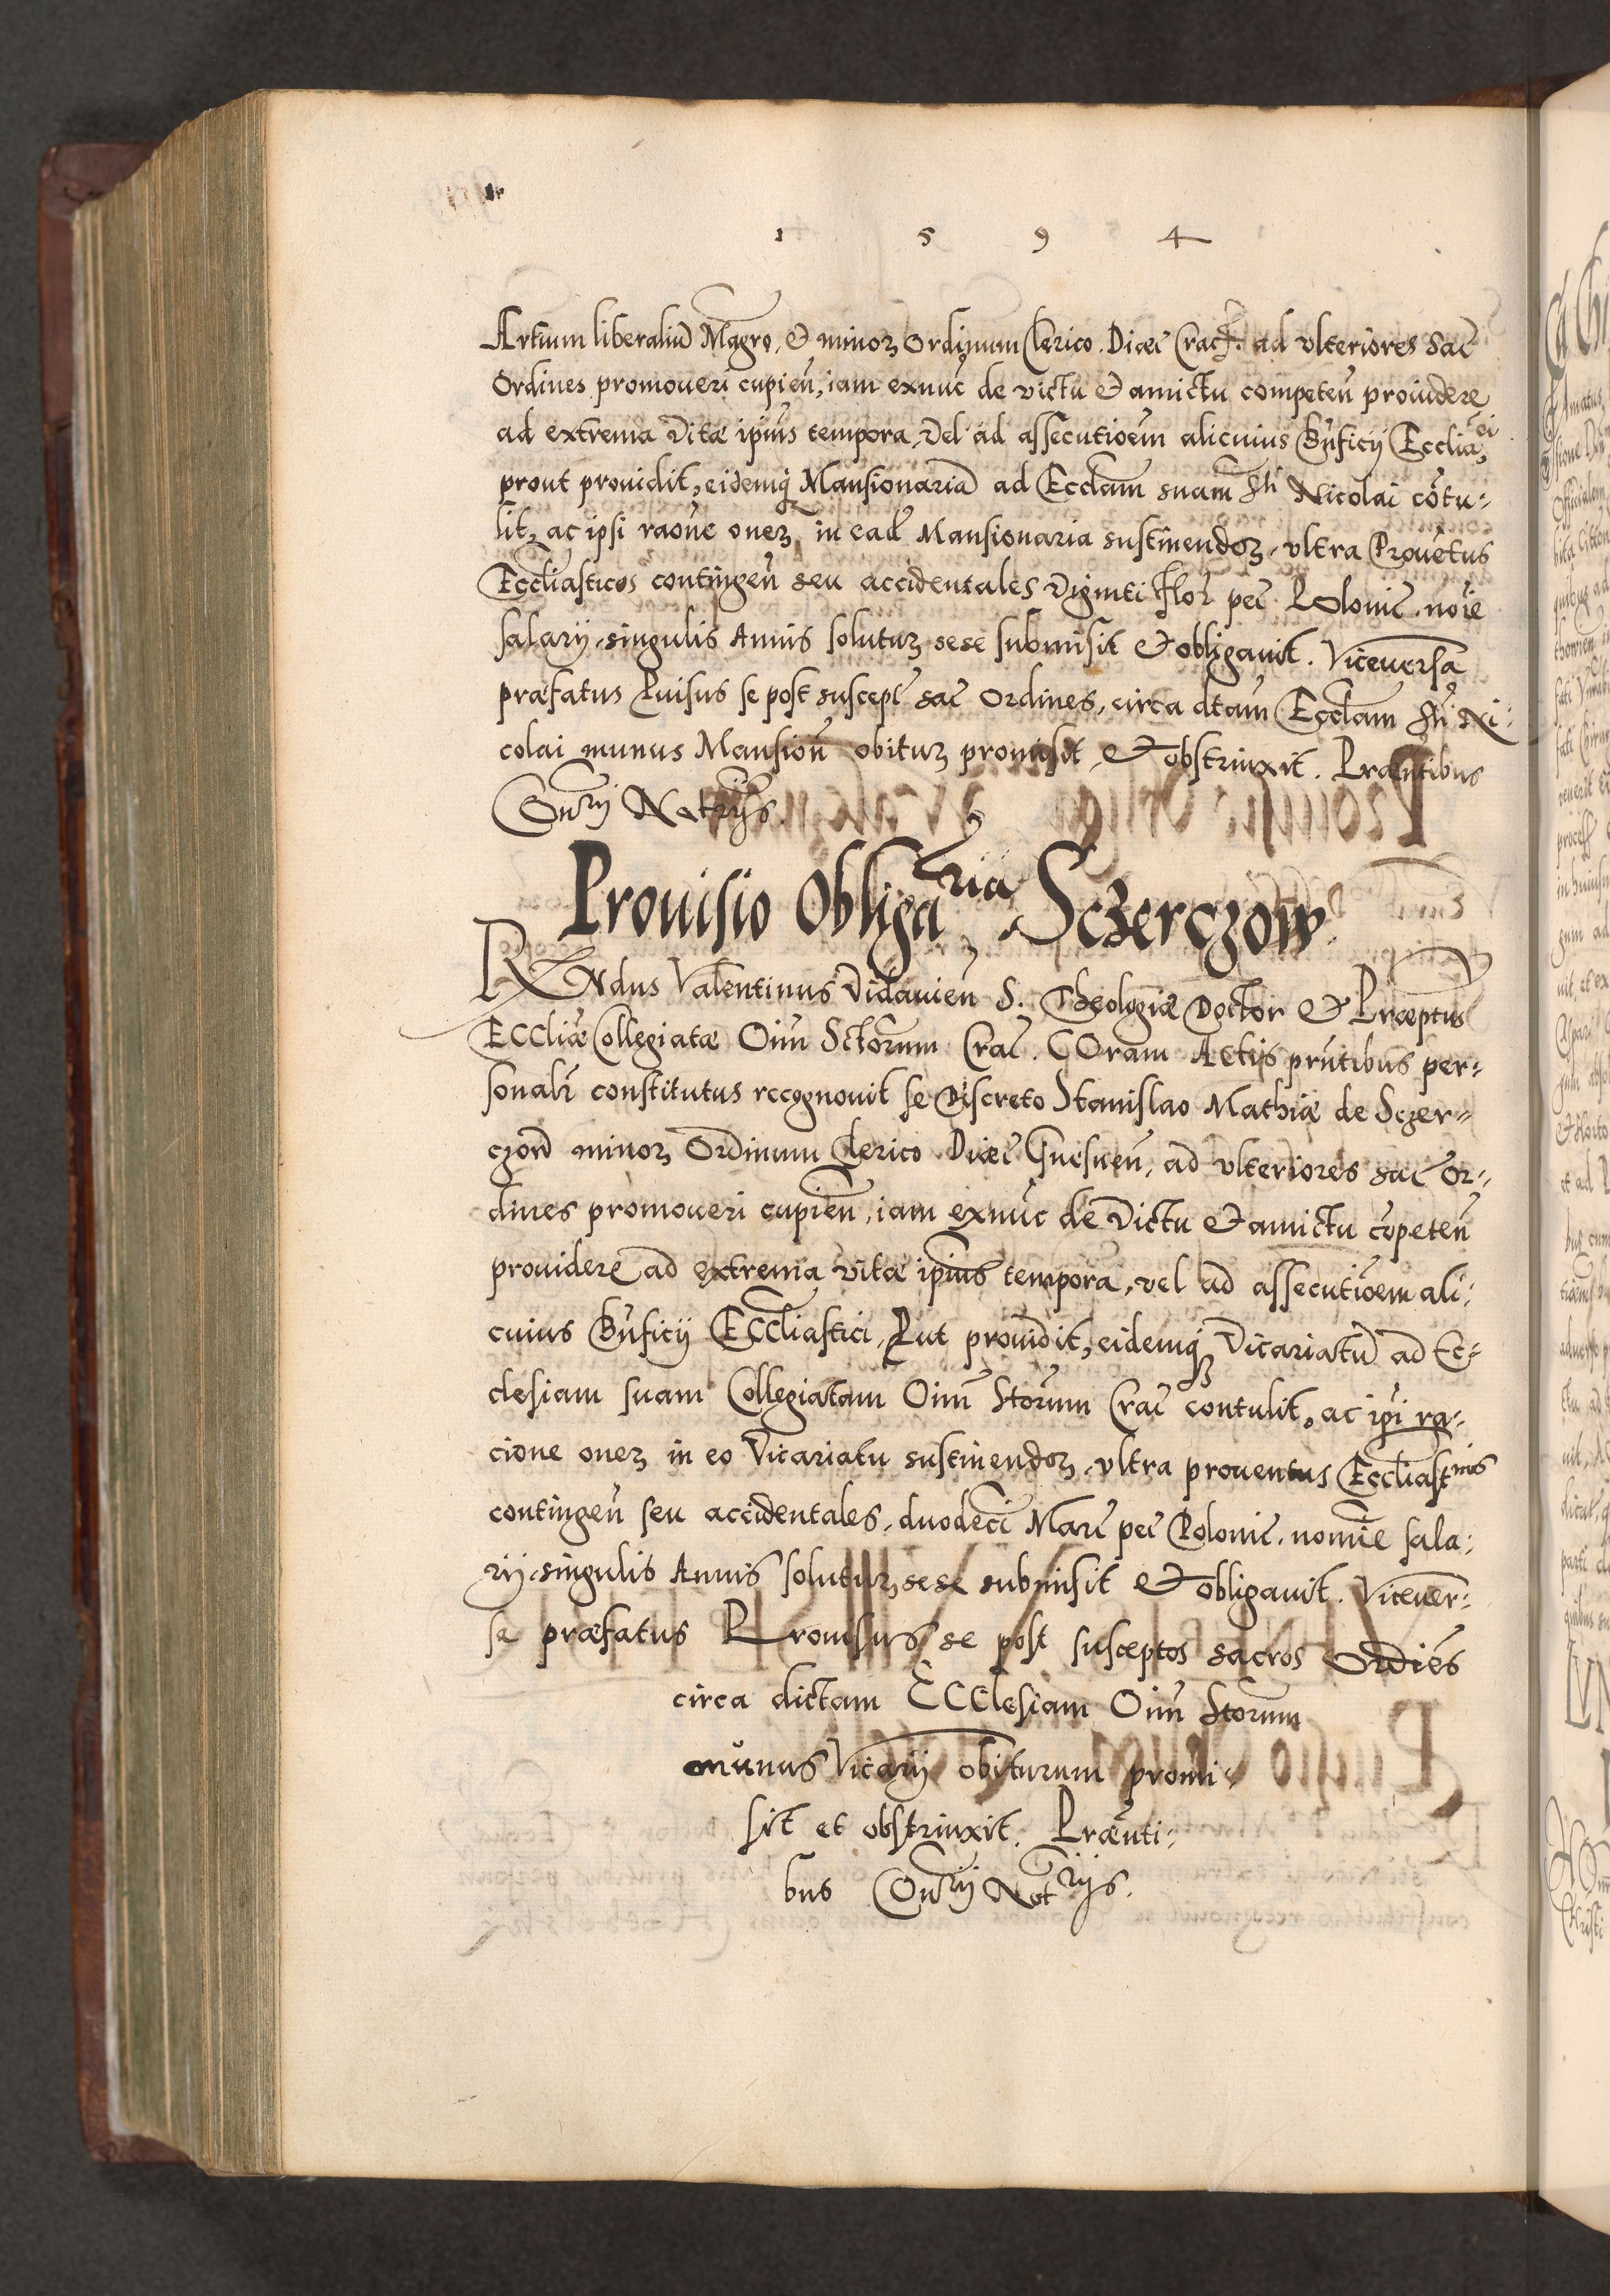 1 5 9 4
Artium liberaliũ Magro, & minoꝝ Ordinum Clerico. Dioeĉ Crac̃. ad vlteriores Sac̃
Ordines promoueri cupieñ, iam exnuc̃ de victu & amictu competeñ prouidere
ad extrema vitæ ipius tempora, vel ad assecutioẽm alicuius Bñficij Eccliaci
prout prouidit, eidemq̃ Mansionariã ad Ecclãm suam Sti Nicolai cõtu-
lit, ac ipsi raoñe oneꝝ in ead̃ Mansionaria sustinendoꝝ, vltra Prouẽtus
Eccliasticos contingeñ seu accidentales viginti Flor̃ pec̃ Polonic̃ noĩe
salarij singulis Annis soluturꝝ sese submisit & obligauit. Viceuersa
præfatus Puisus se post suscept̃ sac̃ Ordines, circa dtam Ecclãm Sti Ni-
colai munus Mansioñ obiturꝝ promisit, & obstrinxit. Præñtibus
Consrij Notrijs
Prouisio Obligaria Sczerczow
REndus Valentinus Vidauieñ S. Theologiæ Doctor & Præeptus
ECCliæ Collegiatæ Oim̃ Sctorum Crac̃. COram Actis prñtibus per-
sonalr̃ constitutus recognouit se Discreto Stanislao Mathiæ de Sczer-
czow minoꝝ Ordinum Clerico Dioeĉ Gnesneñ, ad vlteriores sac̃ Or-
dines promoueri cupieñ, iam exnuc̃ de Victu & amictu cõpeteñ
prouidere ad extrema vitæ ipius tempora, vel ad assecutioẽm ali-
cuius Bñficij ECCliastici, Put prouidit, eidemq̃ Vicariatũ ad Ec-
clesiam suam Collegiatam Oim̃ Storum Crac̃ contulit, ac ipi ra-
cione oneꝝ in eo Vicariatu sustinendoꝝ, vltra prouentus Eccliast
contingeñ seu accidentales, duodecĩ Marc̃ pec̃ Polonic̃. nomĩe sala-
rij singulis Annis soluturꝝ sese submisit & obligauit. Viceuer-
sa præfatus Prouisus se post susceptos sacros Ordiẽs
circa dictam ECClesiam Oim̃ Storum
munus Vicarij obiturum promi-
sit et obstrinxit. Præñti-
bus Consrij Notrijs.